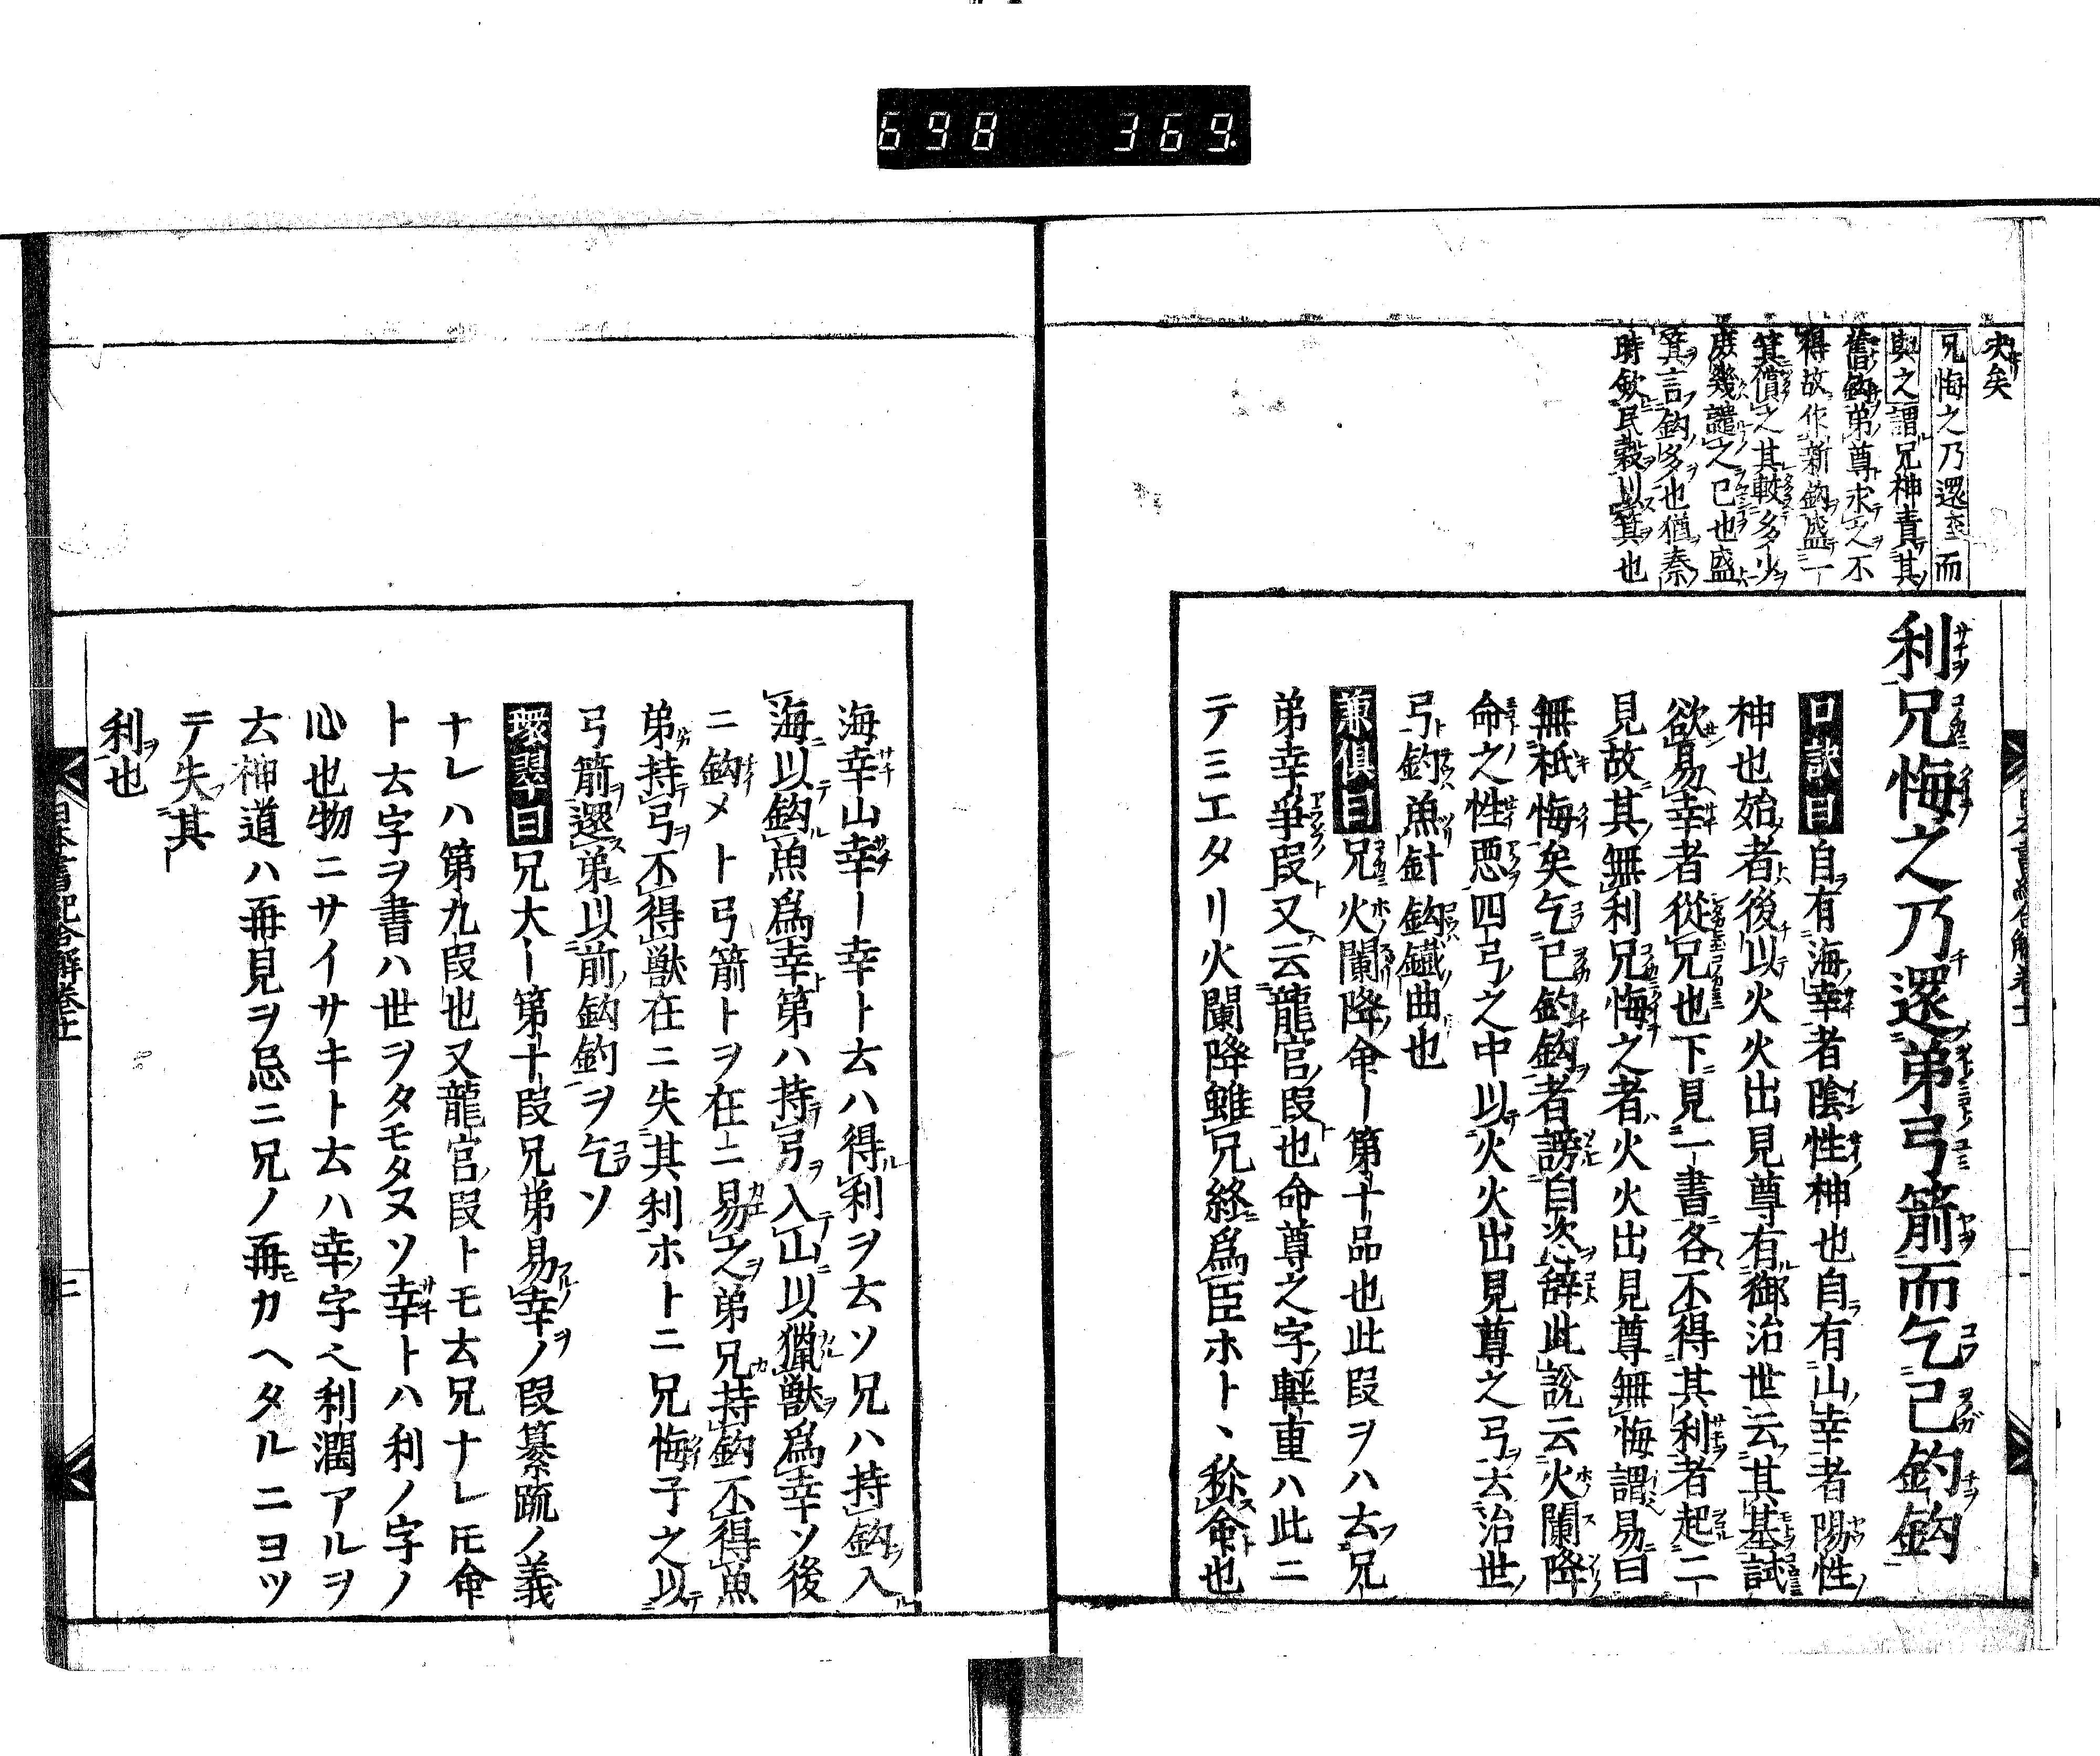 698 369.
矣
兄悔之乃還至而
與之謂兄神責其
舊鈎弟尊求之不
得故作新鈎盛一
箕償之其較多少
庶幾譴之已也盛
箕言鈎多也猶秦
時斂民穀以箕也
利兄悔之乃還弟弓箭而乞己釣鈎
口訣曰自有海幸者陰性神也自有山幸者陽性
神也始者後以火火出見尊有御治世云其基試
欲易幸者從兄也下見一書各不得其利者起二
見故其無利兄悔之者火火出見尊無悔謂易曰
無祇悔矣乞已釣鈎者謗自次辞此說云火闌降
命之性惡四弓之中以火火出見尊之弓云治世
弓釣魚針鈎鐵曲也
兼倶曰兄火闌降命ー第十品也此叚ヲハ云兄
弟幸爭叚又云龍宮叚也命尊之字軽重ハ此ニ
テミエタリ火闌降雖兄終爲臣ホト丶称命也
海幸山幸ー幸ト云ハ得利ヲ云ソ兄ハ持鈎入
海以鈎魚爲幸第ハ持弓入山以獵獣爲幸ソ後
ニ鈎メト弓箭トヲ在ニ易之弟兄持鈎不得魚
弟持弓不得獣在ニ失其利ホトニ兄悔子之以
弓箭還弟以前鈎釣ヲ乞ソ
環翠曰兄大ー第十叚兄弟易幸ノ叚纂疏ノ義
ナレハ第九叚也又龍宮叚トモ云兄ナレ𪜈命
ト云字ヲ書ハ世ヲタモタヌソ幸トハ利ノ字ノ
心也物ニサイサキト云ハ幸字也利潤アルヲ
云神道ハ再見ヲ忌ニ兄ノ再カヘタルニヨツ
テ失其ー
利也
日本書紀合解卷十
二